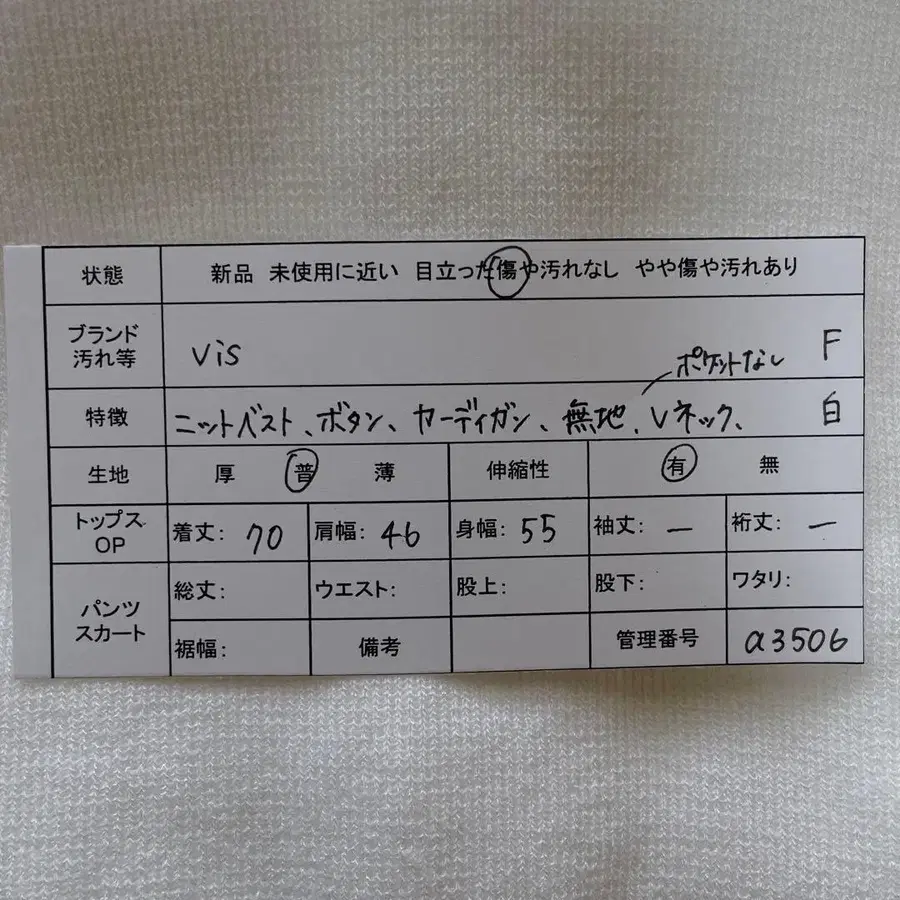 状態 新品 未使用に近い 目立った傷や汚れなし やや傷や汚れあり
ブランド
汚れ等 vis F
ポケットなし
特徴 ニットベスト、ボタン、カーディガン、無地、Vネック、 白
生地 厚 普 薄 伸縮性 有 無
トップス
OP 着丈: 70 肩幅: 46 身幅: 55 袖丈: ー 裄丈: ー
総丈: ウエスト: 股上: 股下: ワタリ:
パンツ
スカート
裾幅: 備考 管理番号 a3506